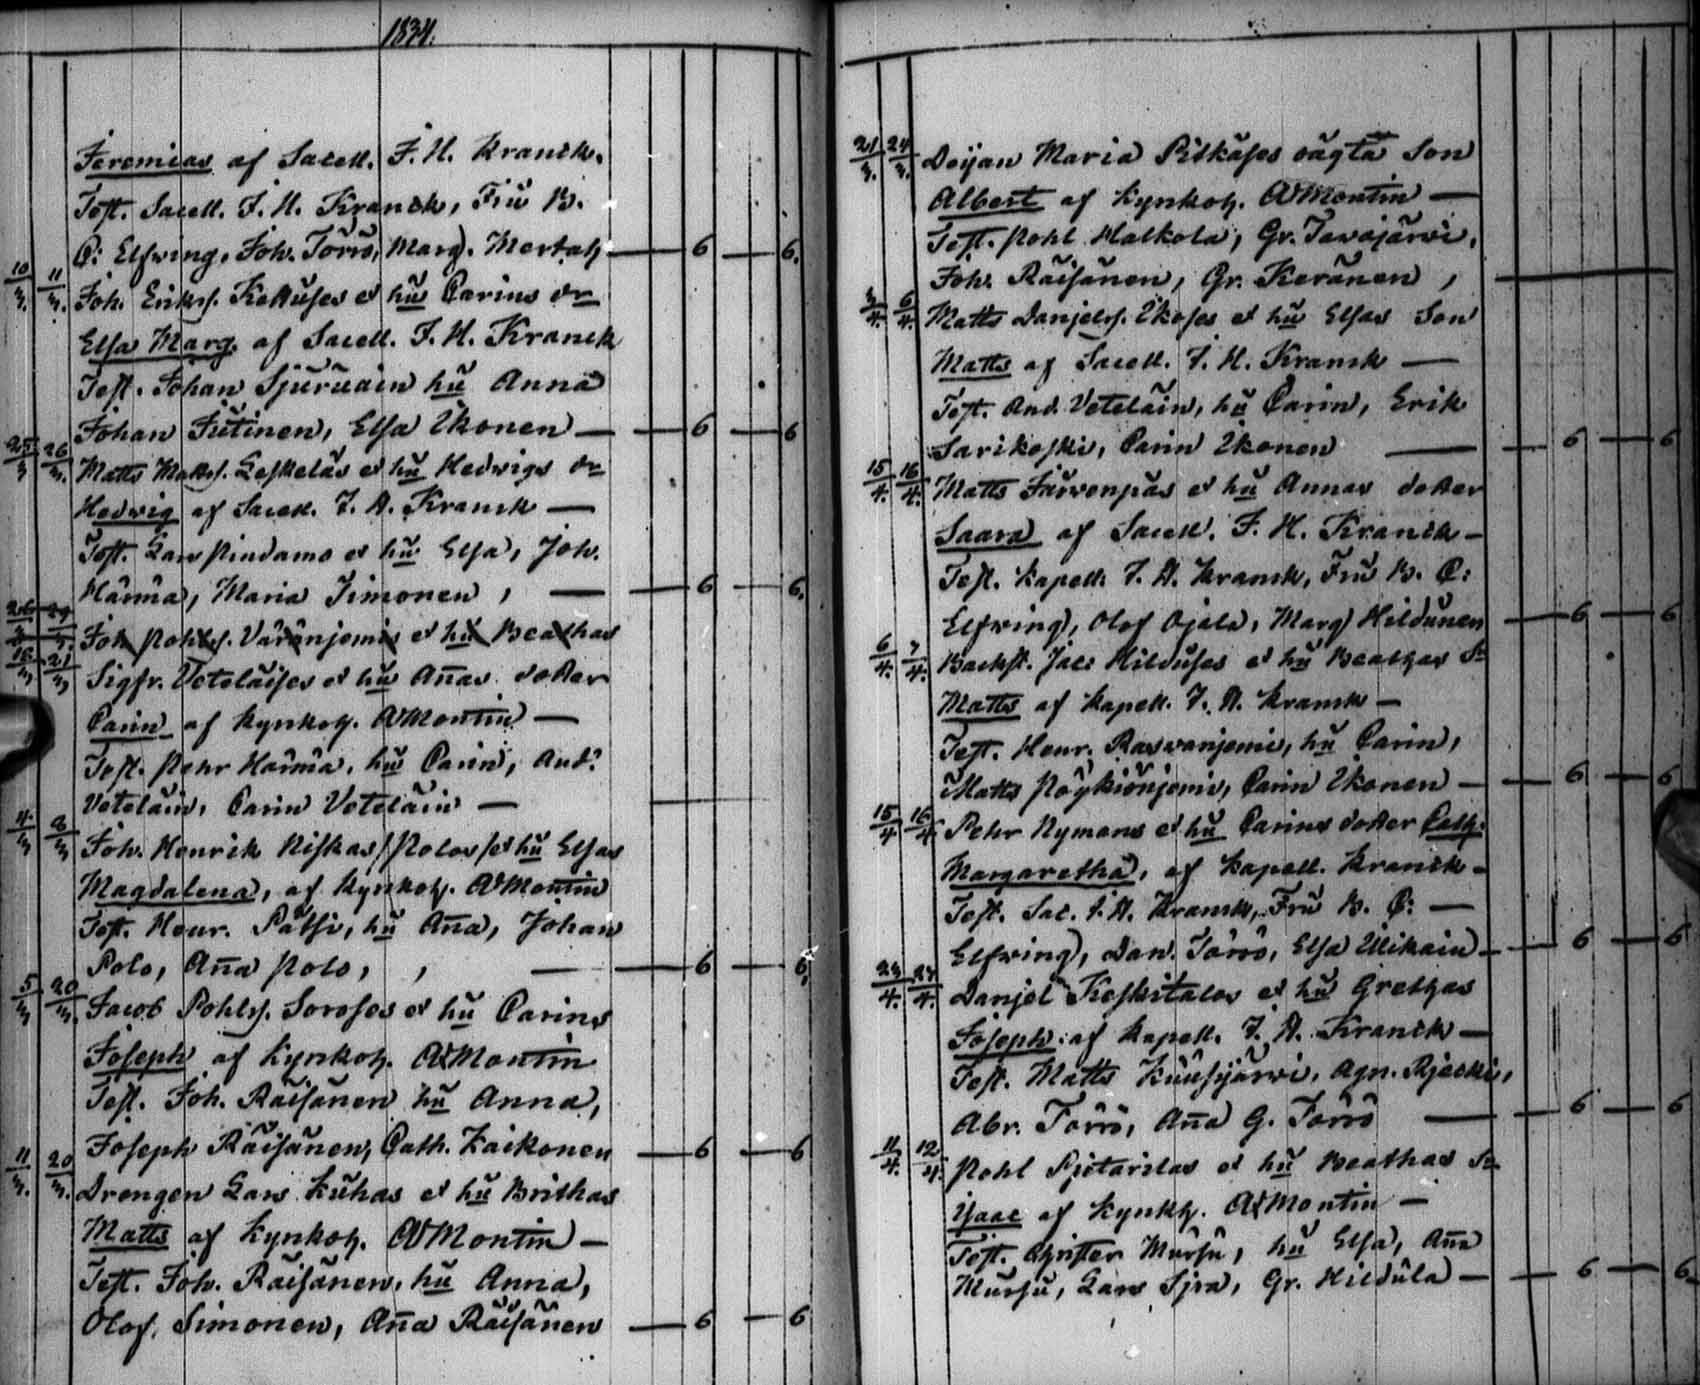 1834.
Jeremias af Sacell. F. H. Kranck.
Test. Sacell. F. H. Kranck, Fru B.
C: Elfving, Joh. Törrö, Marg. — 6 — 6.
10/3. 11/3. Joh. Erikss. et hu Carins dr
Elsa Marg. af Sacell. F. H. Kranck
Test. Johan hu Anna
Johan Elsa Ikonen — 6 — 6
25/3 26/3. Matts Matts. Leskeläs et hu Hedvigs dr
Hedvig af Sacell. F. H. Kranck —
Test. Lars Pindamo et hu Elsa, Joh.
Härmä, Maria Simonen, — 6 — 6.
26/3 29/3. Joh Pohls. et hu Beathas
16/3 21/3 Sigfr. Veteläises et hu Annas dotter
Carin af Kyrkoh. A Montin —
Test. Pehr Härmä, hu Carin, And.
Veteläin, Carin Veteläin —
4/3 8/3 Joh. Henrik Niskas/Polos/et hu Elsas
Magdalena, af Kyrkoh. A Montin
Test. Henr. Pätsi, hu Aña, Johan
Polo, Aña Polo, , — 6 — 6,
5/3 20/3. Jacob Pohls. Soroses et hu Carins
Joseph af Kyrkoh. A Montin
Test. Joh. Räisänen hu Anna,
Joseph Räisänen, Cath. Kaikonen — 6 — 6
11/3. 20/3. Drengen Lars Kuhas et hu Brithas
Matts af Kyrkoh. A Montin —
Test. Joh. Räisänen, hu Anna,
Olof. Simonen, Aña Räisänen — 6 — 6
21/3. 24/3. Maria Pitkäses oägta Son
Albert af Kyrkoh. A Montin —
Test. Pohl Halkola, Gr. Tavajärvi,
Joh. Räisänen, Gr. Keränen, —
3/4. 6/4. Matts Danjels. Ikoses et hu Elsas Son
Matts af Sacell. F. H. Kranck —
Test. And. Veteläin, hu Carin, Erik
Sarikoski, Carin Ikonen — 6 — 6
15/4. 16/4. Matts Järvenpäs et hu Annas dotter
Saara af Sacell. F. H. Kranck —
Test. Kapell. F. H. Kranck, Fru B. C:
Elfving, Olof Ojala, Marg Hildunen — 6 — 6
6/4. 7/4. Backst. Jac: Hilduses et hu Beathas Sn
Matts af Kapell. F. H. Kranck —
Test. Henr. hu Carin,
Matts Carin Ikonen — 6 — 6
15/4 16/4 Pehr Nymans et hu Carins dotter Cath:
Margaretha, af Kapell. Kranck —
Test. Sac. F. H. Kranck, Fru B. C: —
Elfving, Dan. Törrö, Elsa — 6 — 6
23/4. 27/4. Danjel Keskitalos et hu Grethas
Joseph af Kapell. F. H. Kranck —
Test. Matts Agn. Rjeski,
Abr. Törrö, Aña G. Törrö — 6 — 6
11/4. 12/4. Pohl Pjetarilas et hu Beathas Sn
Ysaac af Kyrkh. A Montin —
Test. Christer Mursu, hu Elsa, Aña
Mursu, Lars Sjra, Gr. Hildula — 6 — 6